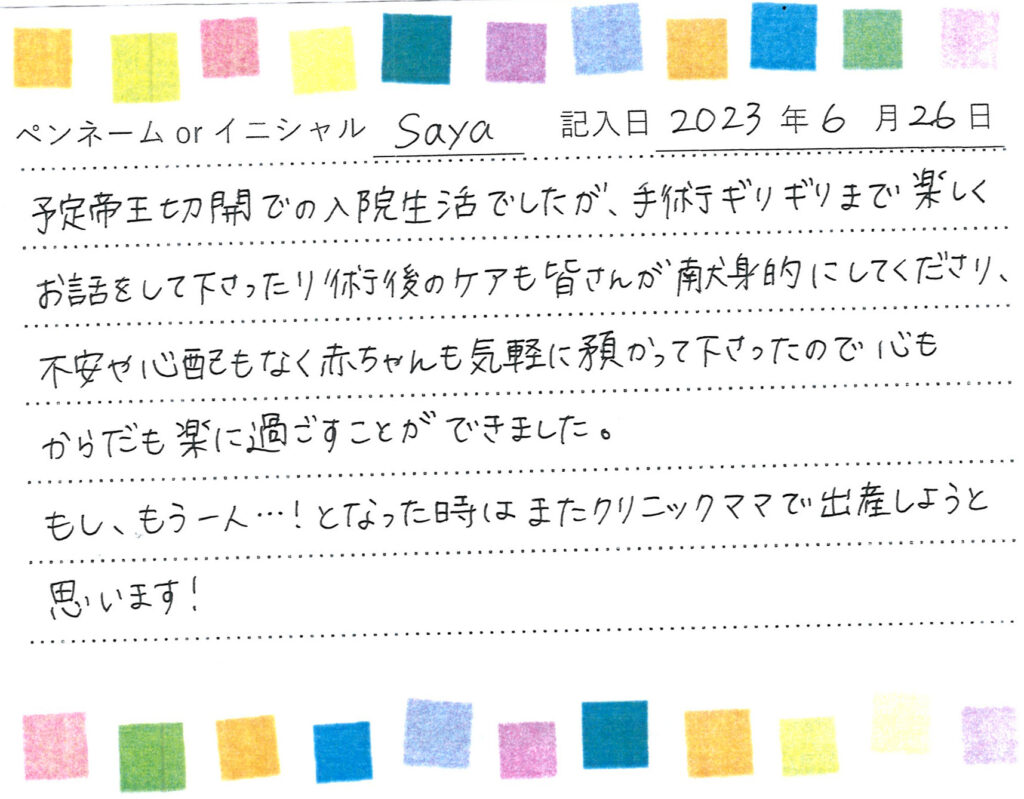 ペンネーム or イニシャル Saya 記入日 2023 年 6 月 26 日
予定帝王切開での入院生活でしたが、手術ギリギリまで楽しく
お話をして下さったり術後のケアも皆さんが献身的にしてくださり、
不安や心配もなく赤ちゃんも気軽に預かって下さったので心も
からだも楽に過ごすことができました。
もし、もう一人…！となった時はまたクリニックママで出産しようと
思います！